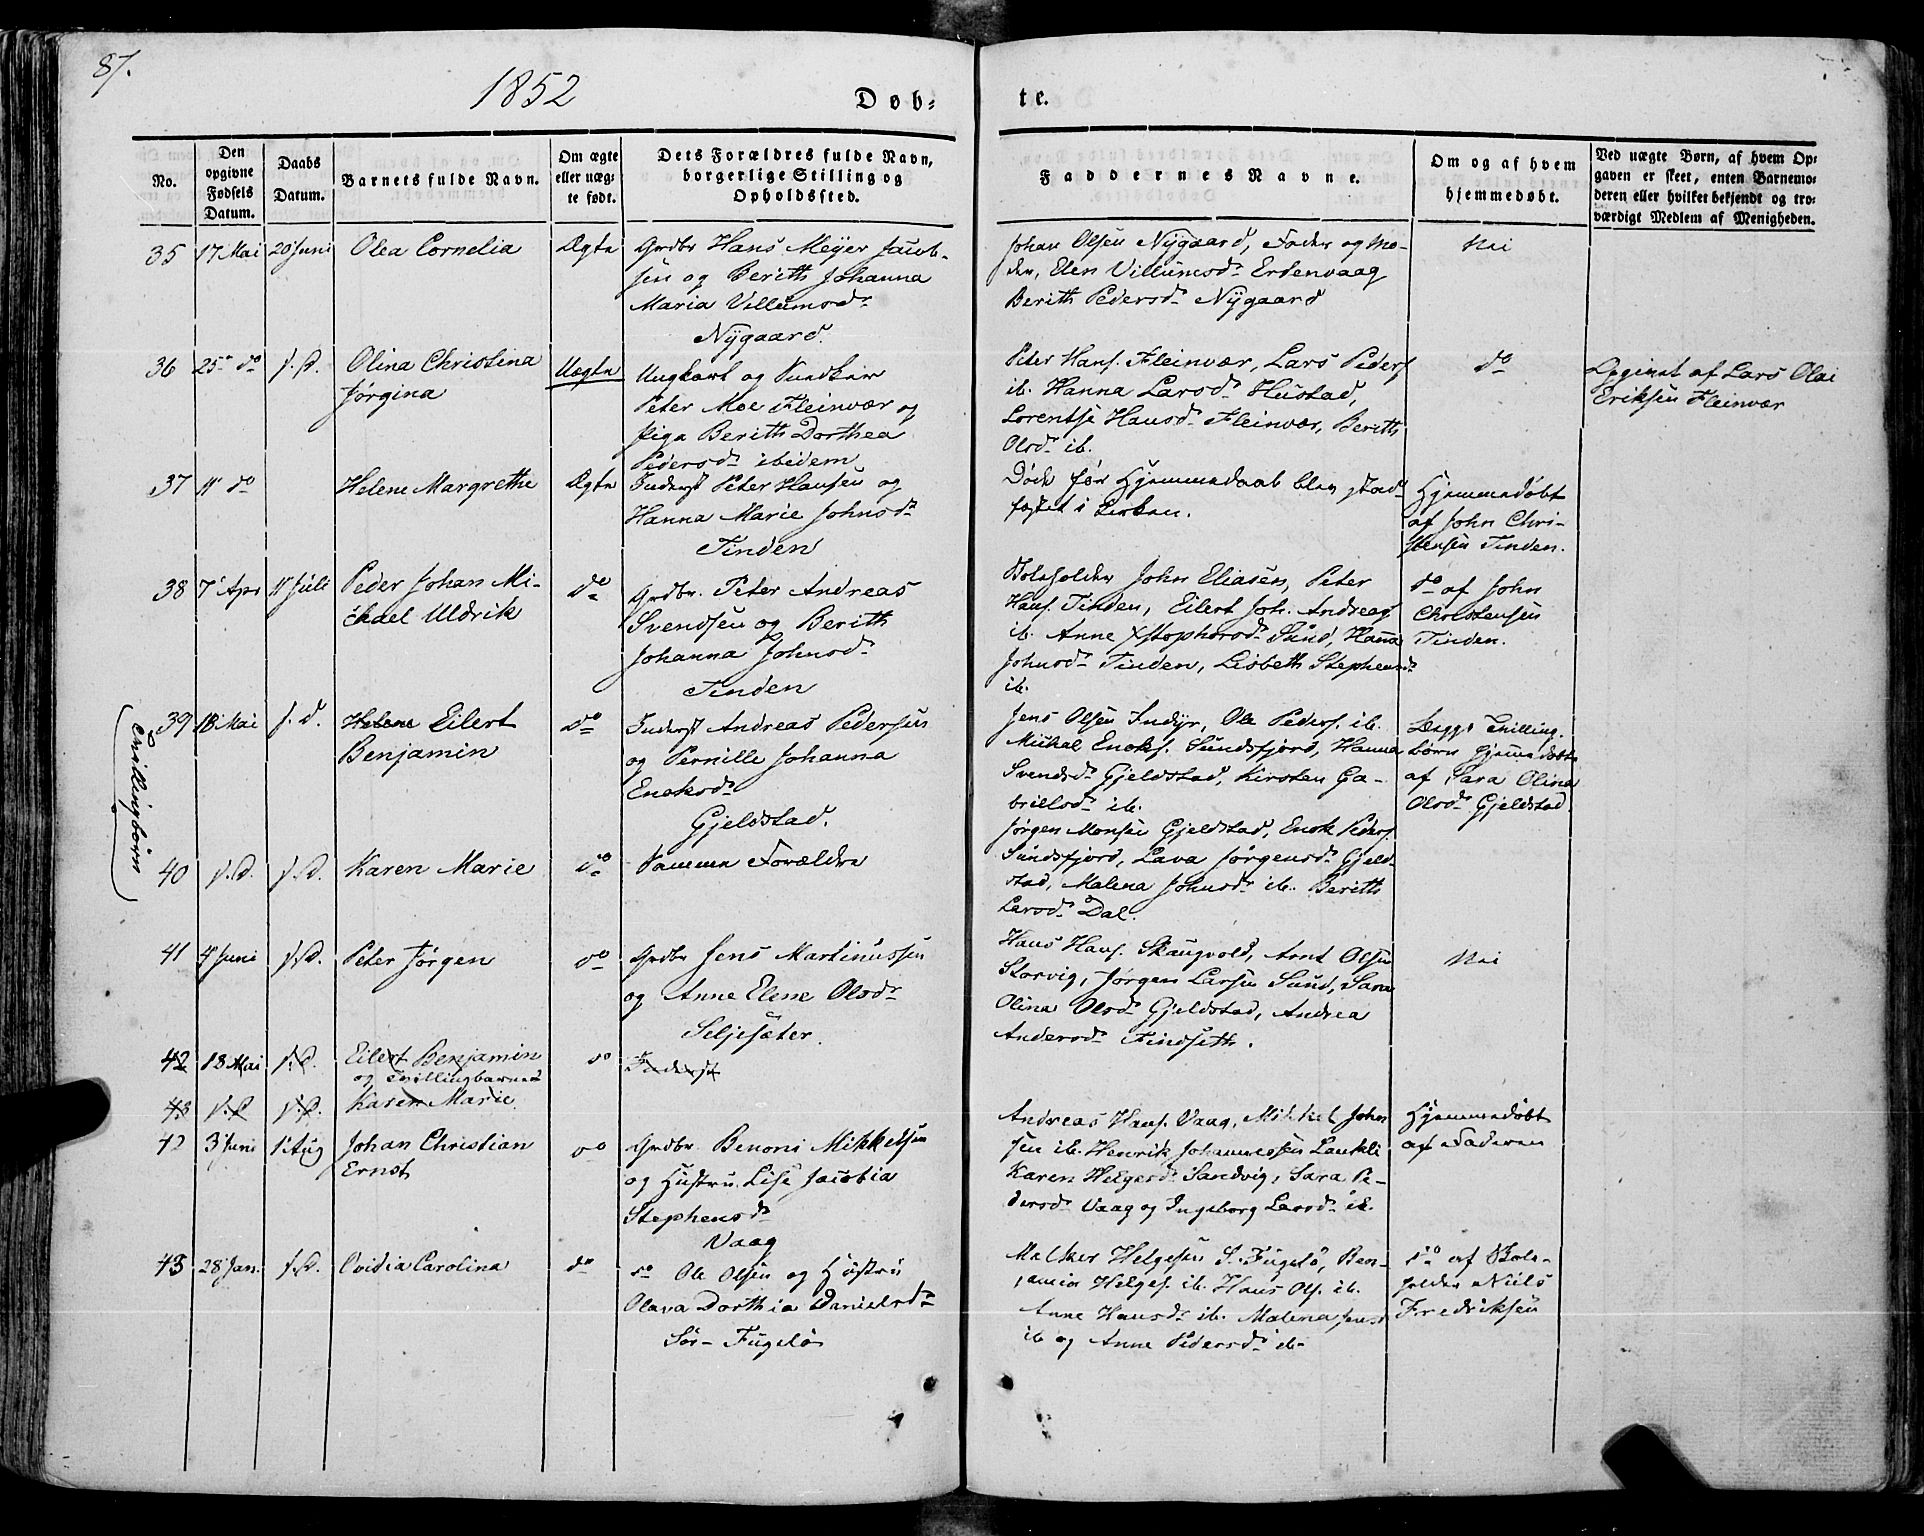 87.
1852
Døb-
te.
No.
Den
opgivne
Fødsels
Datum.
Daabs
Datum.
Barnets fulde Navn.
Om ægte
eller uæg-
te født.
Dets Forældres fulde Navn,
borgerlige Stilling og
Opholdssted.
Faddernes Navne.
Om og af hvem
hjemmedøbt.
Ved uægte Børn, af hvem Op-
gaven er skeet, enten Barnemo-
deren eller hvilket bekjendt og tro-
værdigt Medlem af Menigheden.
35
17 Mai
20 Juni
Olea Cornelia
Ægte
Grdbr Hans Meyer Jacob-
sen og Berith Johanna
Maria Villumsdr
Nÿgaard.
Johan Olsen Nÿgaard, Fader og Mo-
der, Elen Villumsdr
Berith Pedersdr Nÿgaard
Nei
36
25 do
s. d.
Olina Christina
Jørgina
Uægte
Ungkarl og
Peter Moe Fleinvær og
Pige Berith Dorthea
Pedersdr ibidem
Peter Hans. Fleinvær, Lars Peders.
ib. Hanna Larsdr Hustad,
Lorentse Hansdr Fleinvær, Berith
Olsdr ib.
do
Opgivet af Lars Olai
Eriksen Fleinvær
37
11 do
Helene Margrethe
Ægte
Inderst Peter Hansen og
Hanna Marie Johnsdr
Tinden
Døde før Hjemmedaab blev stad-
fæstet i Kirken.
Hjemmedøbt
af John Chri-
stensen Tinden.
38
7 Apr
11 Juli
Peder Johan Mi-
chael Uldrik
do
Grdbr. Peter Andreas
Svendsen og Berith
Johanna Johnsdr
Tinden
John Eliasen, Peter
Hans. Tinden, Eilert Joh. Andreas
ib. Anne Xstophersdr Sund, Hanna
Johnsdr Tinden, Lisbeth Stephensdr
ib.
do af John
Christensen
Tinden.
Tvillingbørn
39
18 Mai
s. d.
Helene Eilert
Benjamin
do
Inderst Andreas Pedersen
og Pernille Johanna
Enoksdr
Gjeldstad.
Jens Olsen Indÿr, Ole Peders. ib.
Mikal Enoks. Sundsfjord, Hanna
Svendsdr Gjeldstad, Kirsten Ga-
brielsdr ib.
Begge Tvilling-
børn Hjemmedøbt
af Sara Olina
Olsdr Gjeldstad.
40
s. d.
s. d.
Karen Marie
do
Samme Forældre
Jørgen Monsen Gjeldstad, Enok Peders.
Sundsfjord, Lava Jørgensdr Gjeld-
stad, Malena Johnsdr ib. Berith
Larsdr Dal.
41
4 Juni
s. d.
Peter Jørgen
do
Grdbr Jens Martinussen
og Anne Elene Olsdr
Seljesæter.
Hans Hans. Skaugvold, Arnt Olsen
Storvig, Jørgen Larsen Sund, Sara
Olina Olsdr Gjeldstad, Andrea
Andersdr Findseth.
Nei
42
18 Mai
s. d.
Eilert Benjamin
og Tvillingbarnet
do
Inderst
43
s. d.
s. d.
Karen Marie
42
3 Juni
1 Aug
Johan Christian
Ernst
do
Grdbr. Benoni Mikkelsen
og Hustru Lise Jacobia
Stephensdr
Vaag
Andreas Hans. Vaag, Mikkel John
sen ib. Henrik Johannessen
Karen Helgesdr Sandvig, Sara Pe-
dersdr Vaag og Ingeborg Larsdr ib.
Hjemmedøbt
af Faderen
43
28 Jan.
s. d.
Ovidia Carolina
do
do Ole Olsen og Hustru
Olava Dorthia Danielsdr
Sør-Fugelø
Helgesen S. Fugelø, Ben-
jamin Helges. ib. Hans Ols. ib.
Anne Hansdr ib. Malena
ib og Anne Pedersdr ib.
do af
Niels
Fredriksen